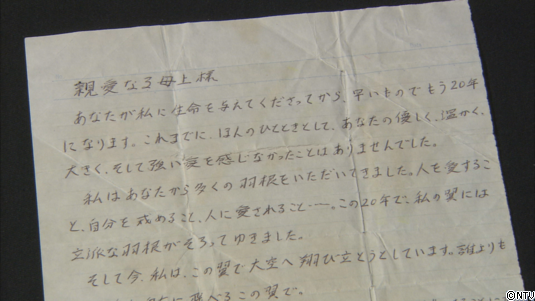 親愛なる母上様
あなたが私に生命を与えてくださってから、早いものでもう20年
になります。これまでに、ほんのひとときとして、あなたの優しく、温かく、
大きく、そして強い愛を感じなかったことはありませんでした。
私はあなたから多くの羽根をいただいてきました。人を愛するこ
と、自分を戒めること、人に愛されること…。この20年で、私の翼には
立派な羽根がそろってゆきました。
そして今、私は、この翼で大空へ翔び立とうとしています。誰よりも
この翼で。
©NTU